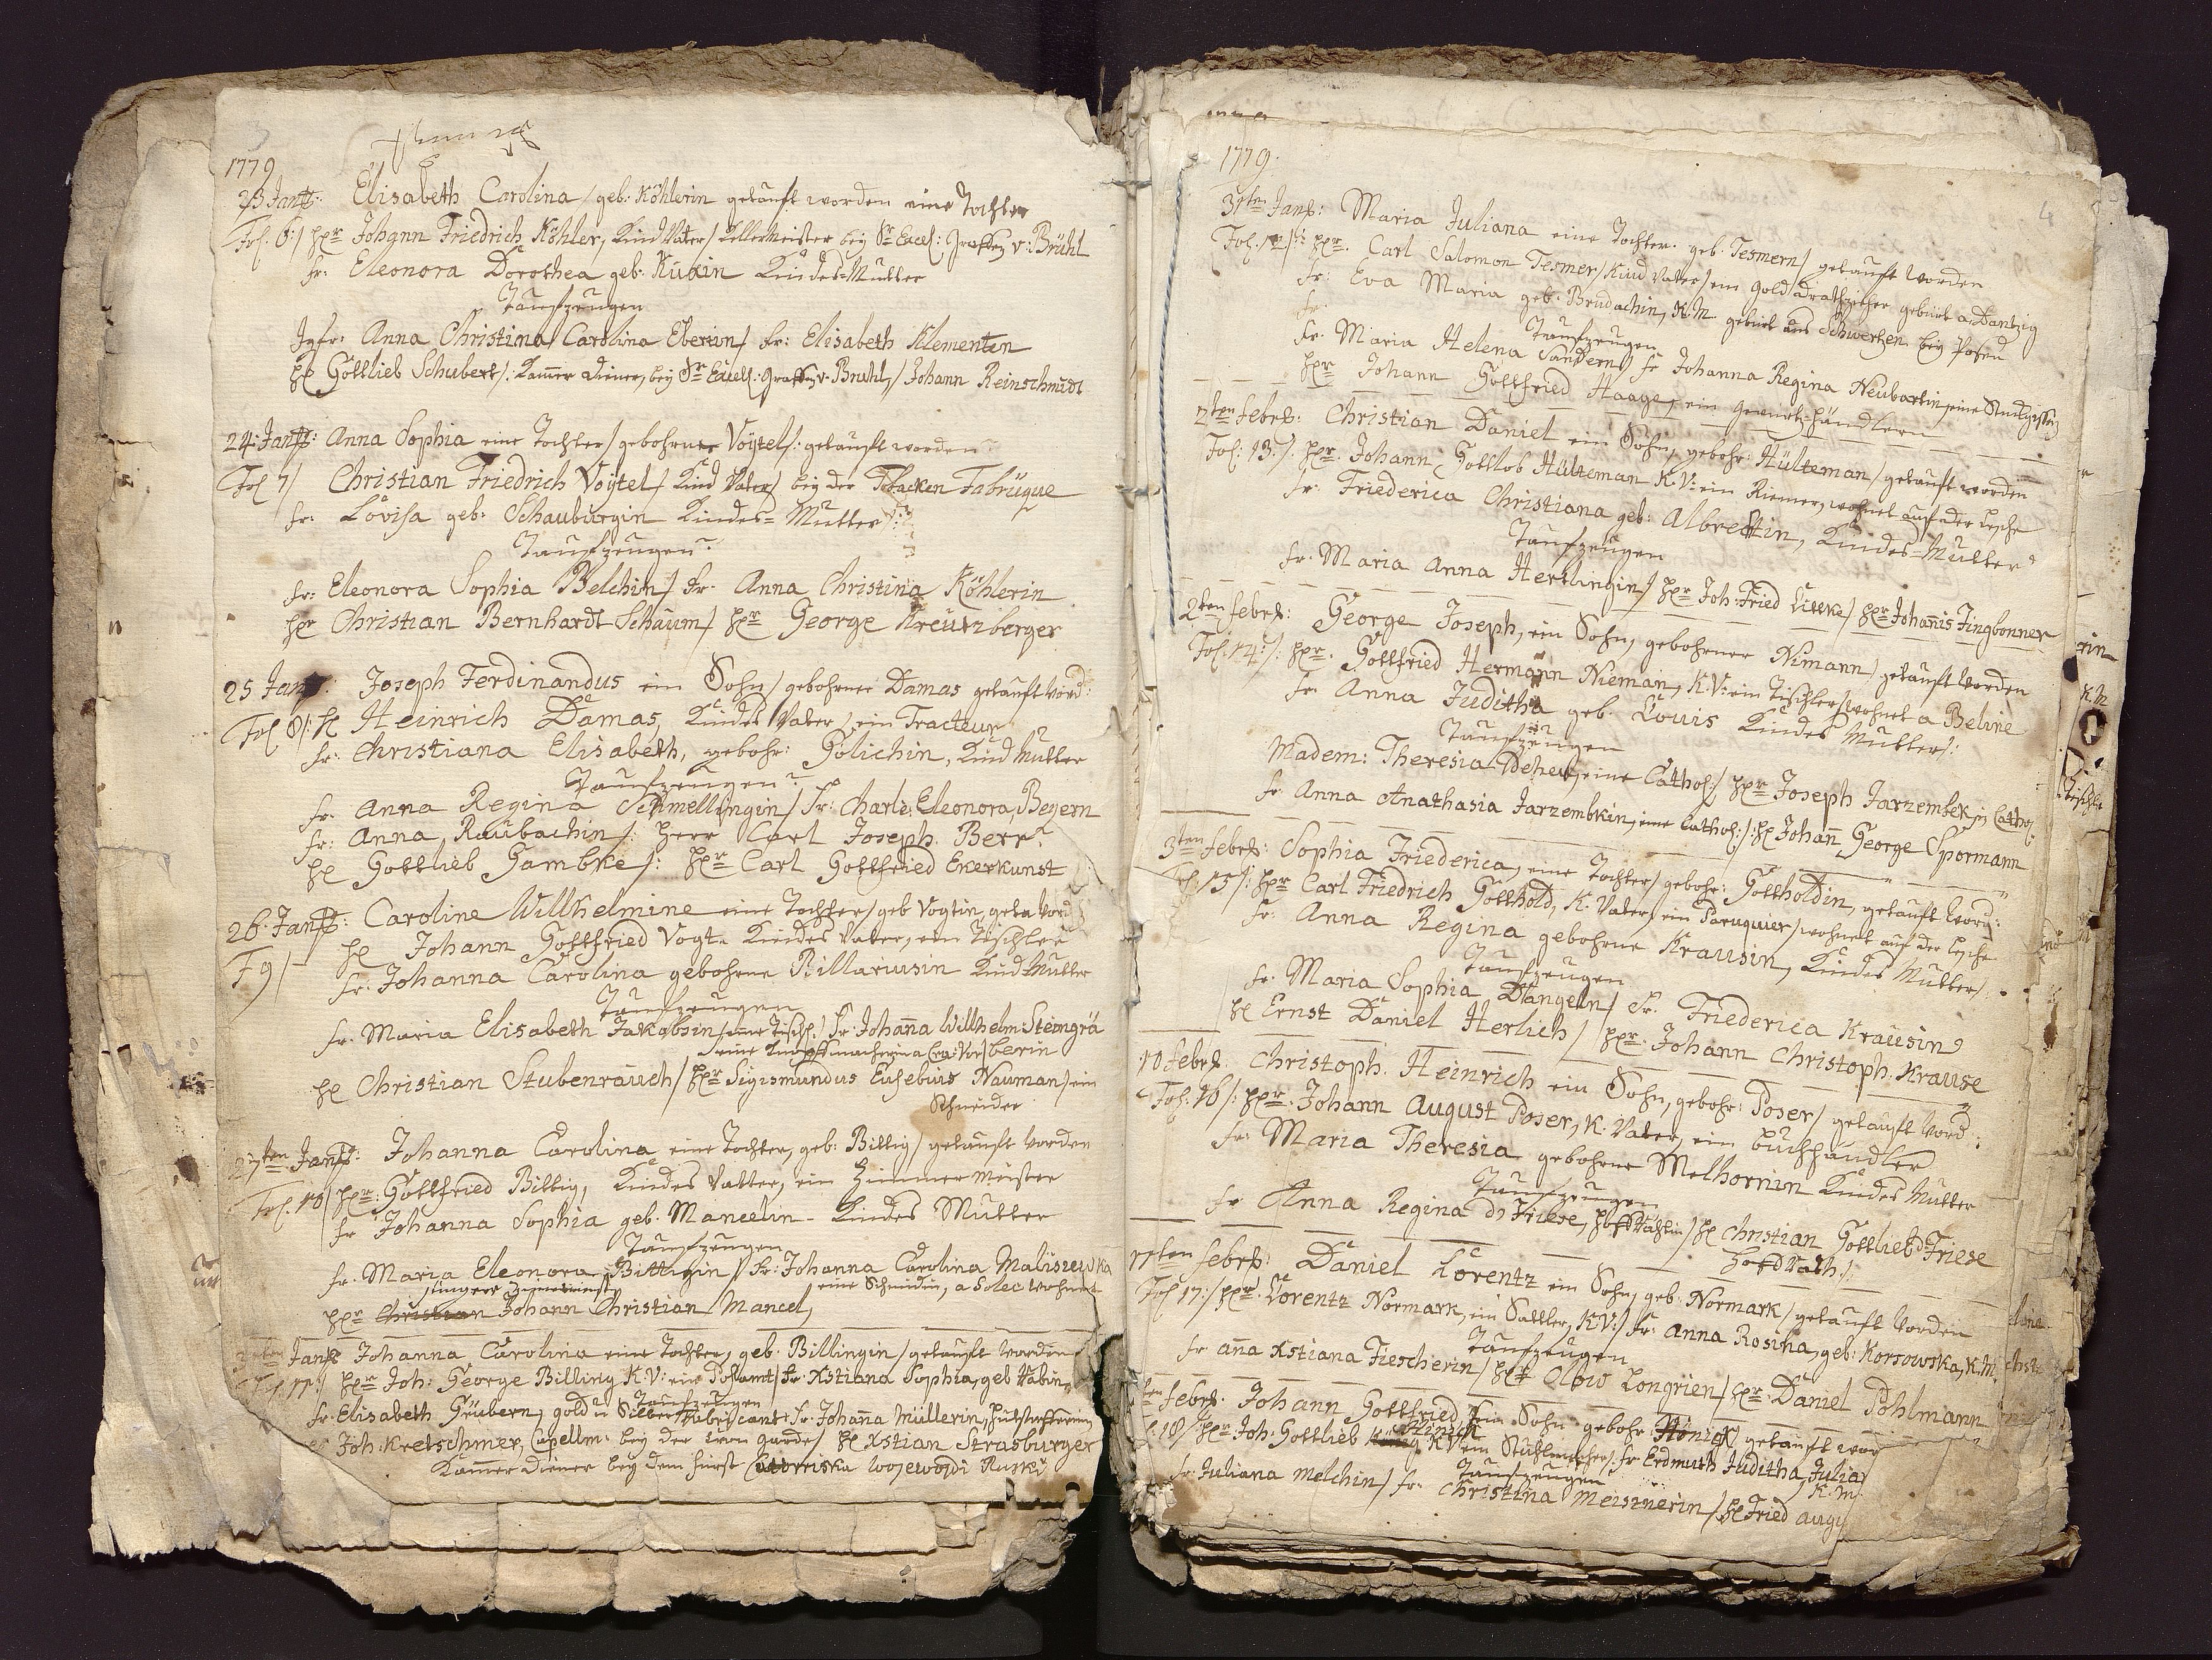 3
1779
23 Janr: Elisabeth Carolina / geb: Köhlerin getauft worden eine Tochter
Fol. 6:/ Hr Johann Friedrich Köhler, Kind Vater / Kellermeister bey Sr Excel: Graffen v: Brühl
fr: Eleonora Dorothea geb: Kindes-Mutter
Taufzeugen
Jgfr: Anna Christina Carolina Eberin / fr: Elisabeth Klementen
H Gottlieb Schubert /: Kammer Diener, bey Sr Excel: Graffen v. Bruhl, / Johann Reinschmidt
24: Janr: Anna Sophia eine Tochter / gebohrne Voÿtel /: getauft worden
Fol 7/ Christian Friedrich Voÿtel / Kind Vater / bey der Tobacken Fabrüque
fr: Lovisa geb: Schauburgin Kindes-Mutter
Taufzeugen
fr: Eleonora Sophia Belchin / fr. Anna Christina Köhlerin
Hr Christian Bernhardt Schaum / Hr George Kreutzberger
25 Janr: Joseph Ferdinandus ein Sohn / gebohrner Damas getauft word:
Fol 8/: H Heinrich Damas, Kindes Vater, ein Tracteur
fr: Christiana Elisabeth, gebohr: Golichin, Kind Mutter
Taufzeugen
fr. Anna Regina Schmellingin / fr: Charl: Eleonora, Beyern
fr: Anna Raubachin /: Herr Carl Joseph Berr.
H Gottlieb Gambke /: Hr Carl Gottfried Ekerkunst
26. Janr: Caroline Willhelmine eine Tochter / geb Vogtin, geta word
F 9/ H Johann Gottfried Vogt. Kindes Vater, ein Tischler
fr: Johanna Carolina gebohrne Billariusin Kind Mutter
Taufzeugen
fr. Maria Elisabeth Jakobsin / eine Tischl / fr Johanna Willhelm: Steingrä
berin
H Christian Stubenrauch / Hr Sigismundus Eusebius Nauman / ein
Schneider
27ten Janr: Johanna Carolina eine Tochter, geb: Bittig / getauft worden
Fol. 10/ Hr: Gottfried Bittig, Kindes Vatter, ein Zimmermeister
fr Johanna Sophia geb. Mancelin - Kindes Mutter
Taufzeugen
fr. Maria Eleonora Bittigin / fr: Johanna Carolina Maliszewska
eine Schneidin, a Solec wohnet
Hr Christian Johann Christian Mancel,
Janr Johanna Carolina eine Tochter, geb: Billingin / getauft worden
Fol. 11:/ Hr Joh: George Billing K V: ein / fr. Xstiana Sophia, geb
Taufzeugen
fr. Elisabeth Grübern, gold u Silber Fabricant: fr: Johanna Müllerin,
Joh: Kretschmer, Capellm: bey der Cron garde / H Xstian Strasburger
Kammer Diener bey dem Fürst Czatorriska Wojewoidi Ruski
4
1779.
31ten Janr: Maria Juliana eine Tochter. geb: Tesmern / getauft worden
Fol. 12/: Hr. Carl Salomon Tesmer / Kind Vater / ein Golddrathzieher gebürt a Dantzig
fr: Eva Maria geb: Brudachin, K: M. gebürt aus Schwersen bey Posen
fr.
Taufzeugen
fr. Maria Helena Sandern / fr Johanna Regina Neubartin,
Hr Johann Gottfried Haage, ein Gewurtz-händlern
2ten febr: Christian Daniel ein Sohn, gebohr: Hülteman / getauft worden
Fol: 13./. Hr. Johann Gottlob Hülteman K. V: ein Riemer, wohnet auf der Lesche
fr: Friederica Christiana geb: Albrechtin, Kindes-Mutter
Taufzeugen
fr. Maria Anna Hertlingin / Hr Joh: Fried Littke / Hr Johannis Jingbonner
2ten febr: George Joseph, ein Sohn, gebohrner Nimann / getauft worden
Fol. 14:/: Hr. Gottfried Hermann Nieman, K. V: ein Tischler / wohnet a Beline
fr Anna Juditha geb. Louis Kindes Mutter /:
Taufzeugen
Madem: Theresia eine Cathol:/ Hr Joseph Jarzembek, ein Cathol:
fr Anna Anathasia Jarzembkin, eine Cathol:/: H Johann George Spormann
3ten febr: Sophia Friederica, eine Tochter / gebohr: Gottholdin, getauft word:
Fol. 15/: Hr Carl Friedrich Gotthold, K: Vater, ein Paruquier / wohnet auf der Lesche
fr: Anna Regina gebohrne Krausin, Kindes Mutter /.
Taufzeugen
fr. Maria Sophia Dangeln / fr. Friederica Krausin
H Ernst Daniel Herlich / Hr. Johann Christoph. Krause
10 febr. Christoph. Heinrich ein Sohn, gebohr: Poser / getauft word:
Fol: 16/: Hr. Johann August Poser, K: Vater, ein Buchhändler
fr: Maria Theresia gebohrne Melhornin Kindes Mutter
Taufzeugen
fr Anna Regina d Friese, Hoffräthin / H Christian Gottlieb d Friese
Hoff Rath /.
11ten febr: Daniel Lorentz ein Sohn, geb: Normark / getauft worden
Fol 17:/ Hr. Lorentz Normark, ein Sattler, K V:/ fr: Anna Rosina, geb: Korsowska, K. M.
Taufzeugen
fr anna Xstiana Fiescherin / Hr Olow Longrien / Hr. Daniel Pohlmann
febr. Johann Gottfried, ein Sohn gebohr: Hönick / getauft wor
18/ Hr Joh. Gottlieb Hönick K V: ein Stuhlmacher /: fr Erdmuth Juditha Julia
K. M.
Taufzeugen
fr. Juliana Melchin / fr. Christina Meisznerin / H Fried augu